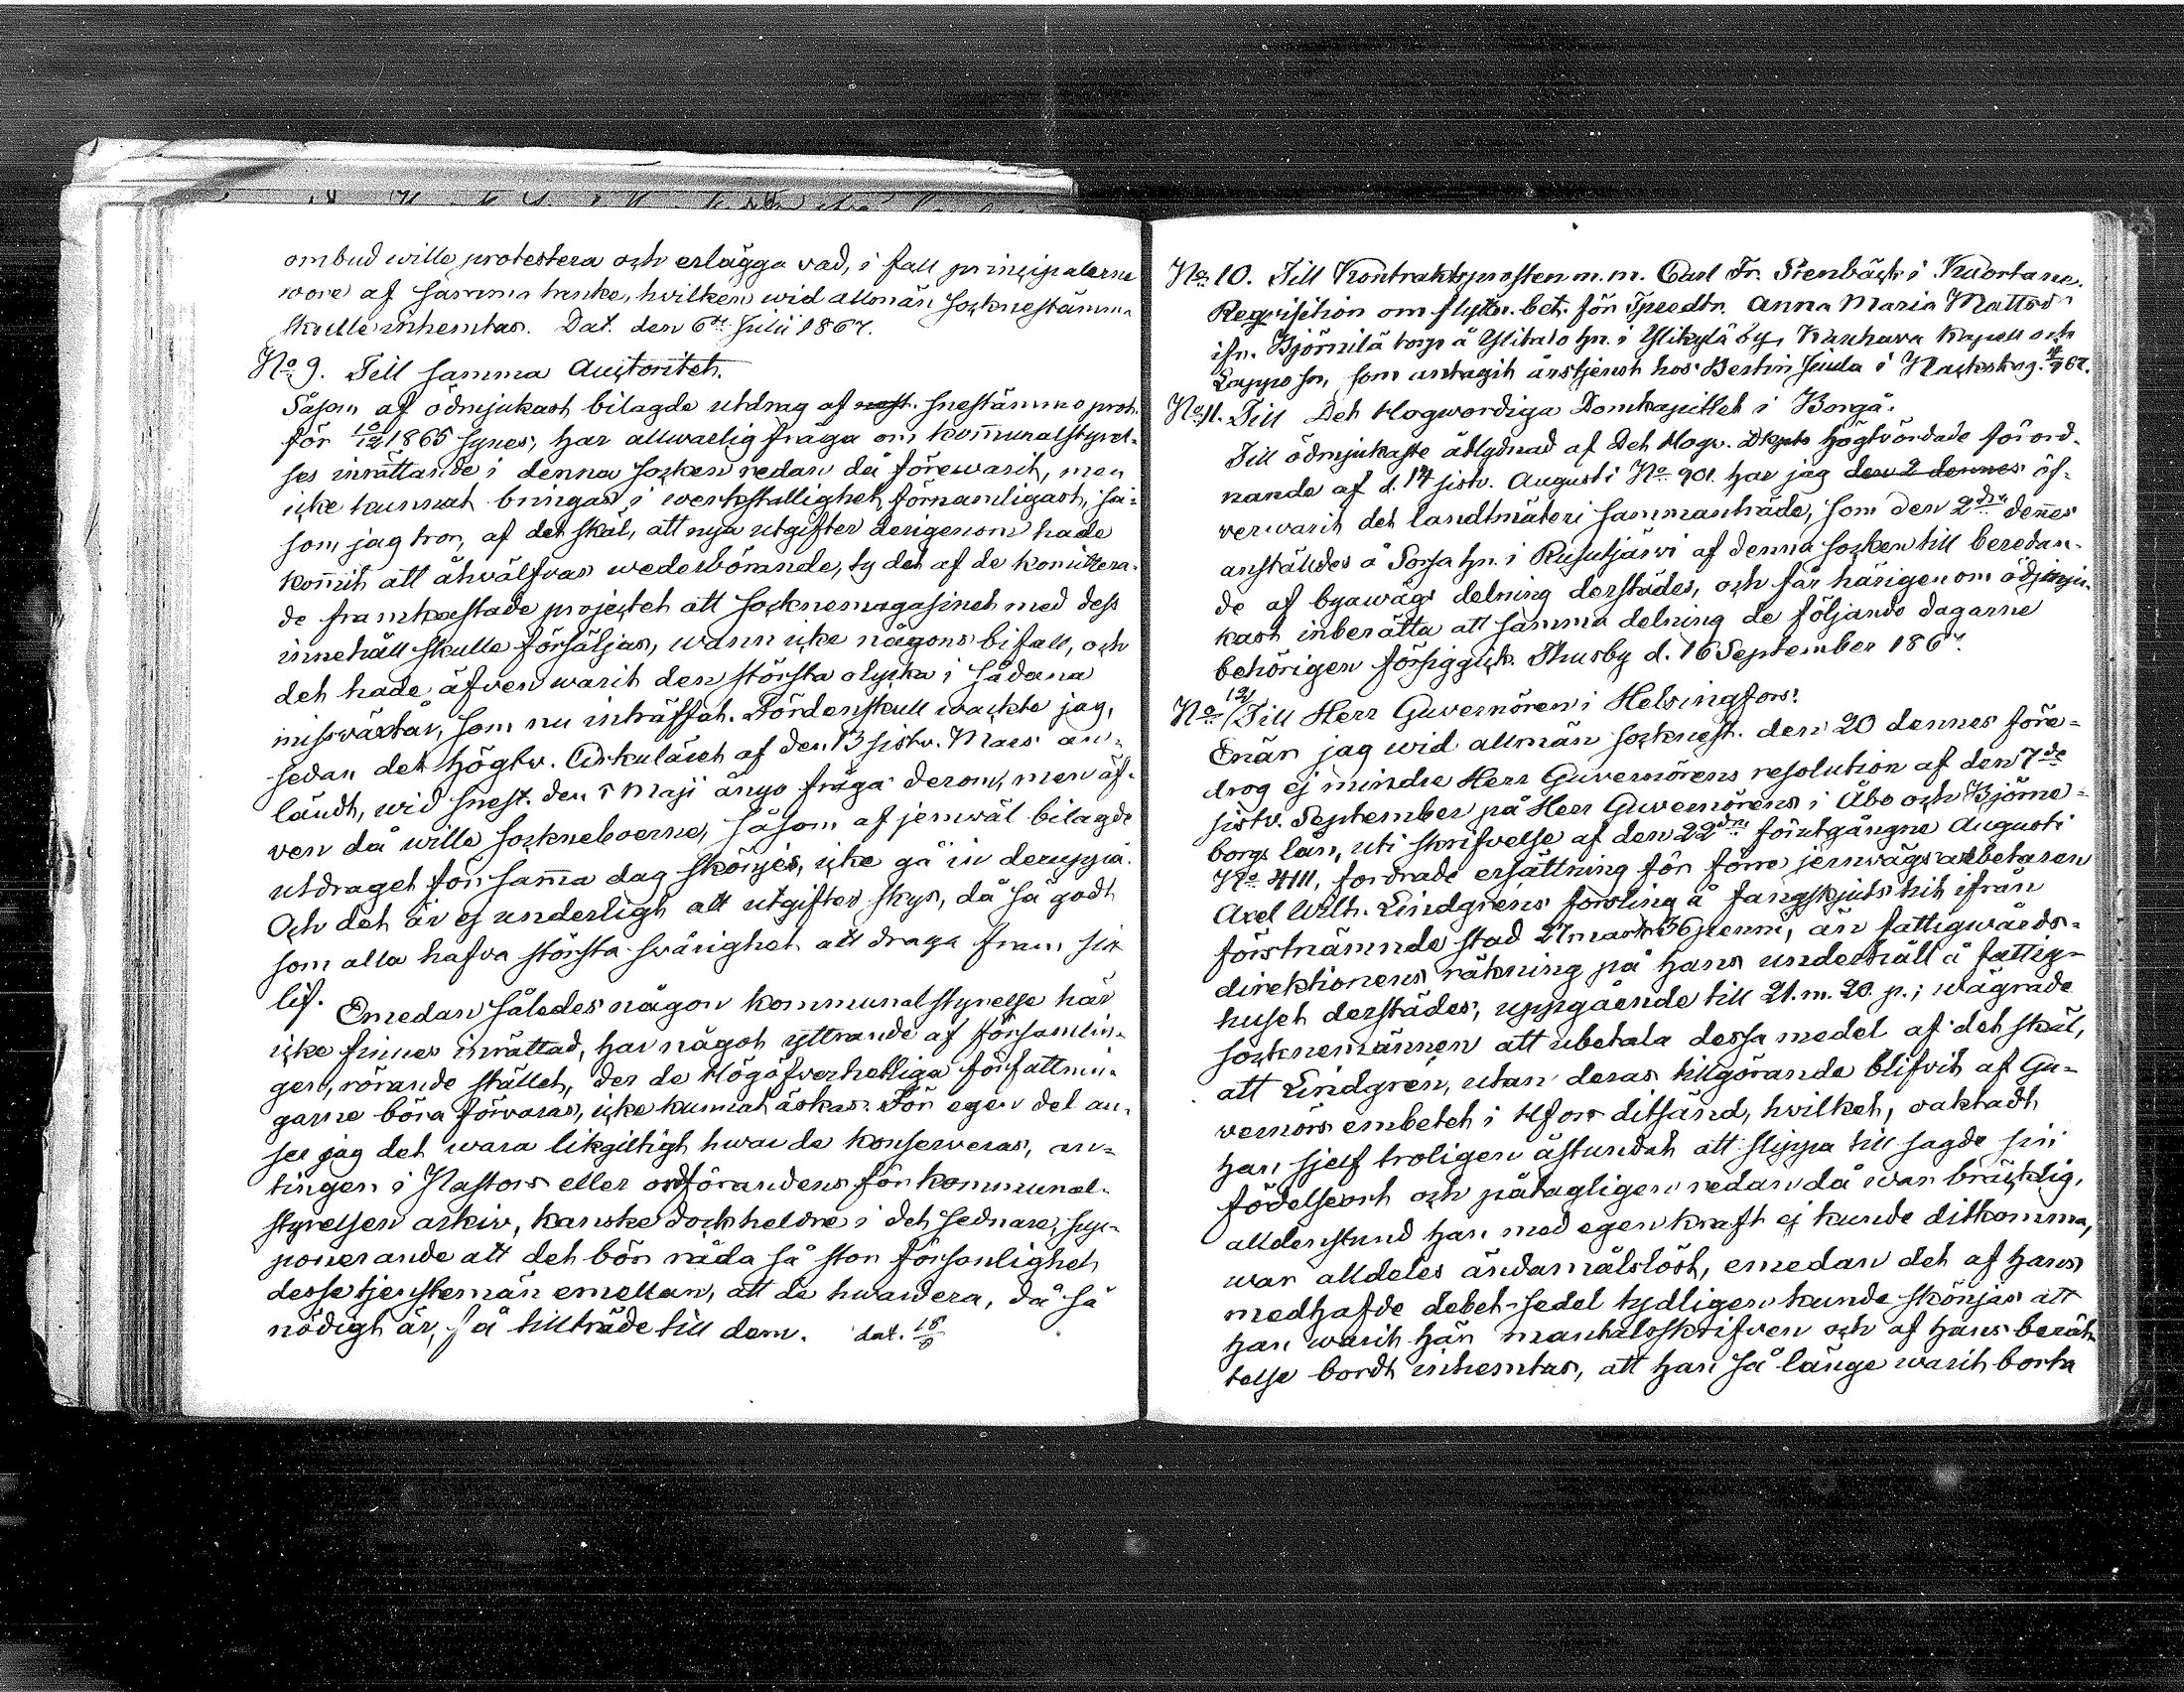 ombud wille protestera och erlägga vad, i fall principalerne
wore af samma tanke, hvilken wid allmän socknestämma
skulle inhemtas. Dat. den 6te Julii 1867.
No 9. Till samma Auctoritet.
Såsom af ödmjukast bilagde utdrag af snestämmo prot.
för 10/12 1865 synes, har allwarlig fråga om kommunalstyrel-
ses inrättande i denna socken redan då förewarit, men
icke kunnat bringas i werkställighet, förnämligast, så-
som jag tror, af det skäl, att nya utgifter derigenom hade
kommit att åhvälfvas wederbörande, ty det af de komittera-
de framkastade projectet att socknemagasinet med dess
innehåll skulle försäljas, wann icke någons bifall, och
det hade äfven warit den största olycka i sådana
misswäxtår, som nu inträffat. Fördenskull wäckte jag,
sedan det högtw. Cirkuläret af den 13 sistv. Mars an-
ländt, wid snest. den 5 Maji ånyo fråga derom, men äf-
ven då wille sockneboerne, såsom af jemwäl bilagde
utdraget för samma dag skönjes, icke gå in deruppå.
Och det är ej underligt att utgifter skys, då så godt
som alla hafva största swårighet att draga fram sitt
lif. Emedan således någon kommunalstyrelse här
icke finnes inrättad, har något yttrande af församlin-
gen, rörande stället, der de Högöfverhetliga författnin-
garne böra förvaras, icke kunnat äskas. För egen del an-
ser jag det wara likgiltigt hwar de konserveras, an-
tingen i Pastors eller ordförandens för kommunal-
styrelsen arkiv, kanske dock heldre i det sednare, sup-
ponerande att det bör råda så stor försonlighet
desse tjenstemän emellan, att de hwardera, då så
nödigt är, få tillträde till dem. dat. 18/8
No 10. Till Kontraktsprosten m.m. Carl Fr. Stenbäck i Kuortane.
Requisition om flyttn. bet. för Speedtr. Anna Maria Mattsd
ifr. Björnilä torp å Ylitalo hn. i Ylikylä by, Kauhava Kapell och
Lappo sn, som antagit årstjenst hos Bertin Juda i Nackskog.
No 11. Till Det Högwördiga Domkapitlet i Borgå.
Till ödmjukaste åtlydnad af Det Högv. Dkpts högtvördade förord-
nande af d. 14 sistv. Augusti No 901. har jag den 2 dennes öf-
verwarit det landtmäteri sammanträde, som den 2dra dennes
anställdes å Sorsa hn. i Rusutjärwi af denna socken till beredan-
de af byawägs delning derstädes, och får härigenom ödmju-
kast inberätta att samma delning de följande dagarne
behörigen försiggick. Thusby d. 16 September 1867.
No 12/ Till Herr Guvernören i Helsingfors.
Enär jag wid allmän socknest. den 20 dennes före-
drog ej mindre Herr Guvernörens resolution af den 7de
sistv. September på Herr Guvernörens i Åbo och Björne-
borgs län, uti skrifvelse af den 22dra förutgångne Augusti
No 4111, fordrade ersättning för förre jernwägsarbetaren
Axel Wilh. Lindgréns forsling å fångskjuts hit ifrån
förstnämnde stad 27 mark 36 penni, än fattigwårds-
direktionens räkning på hans underhåll å fattig-
huset derstädes, uppgående till 21. m. 20. p.; wägrade
socknemännen att ubetala dessa medel af det skäl,
att Lindgrén, utan deras tillgörande blifvit af Gu-
vernörs embetet i Hfors ditsänd, hvilket, oaktadt
han sjelf troligen åstundat att slippa till sagde sin
födelseort och påtagligen redan då war bräcklig,
alldenstund han med egen kraft ej kunde ditkomma,
war alldeles ändamålslöst, emedan det af hans
medhafde debet-sedel tydligen kunde skönjas att
han warit här mantalsskrifven och af hans berät-
telse bordt inhemtas, att han så länge warit borta